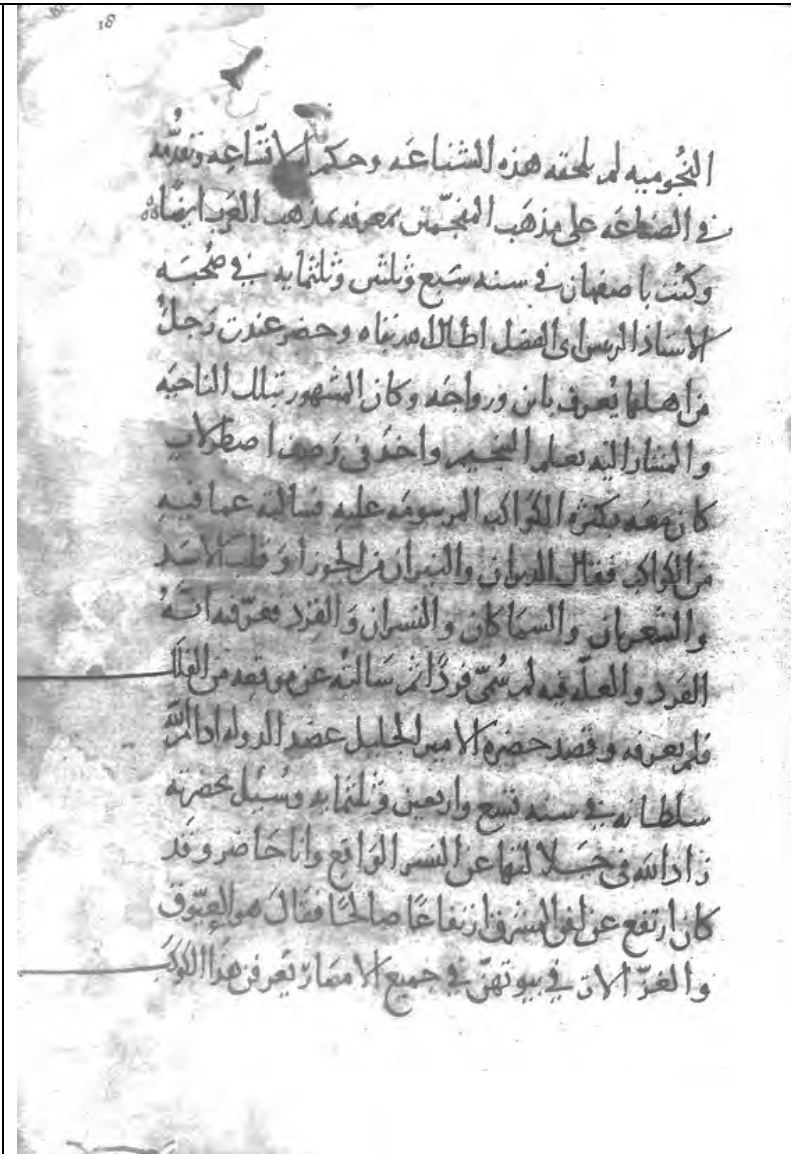 18
النُّجوميه لم يلحقه هذه الشناعَه وحكم له بالاقناعِه وتقدُّمه
في الصناعَه على مذهَب المنجّمين بمعرفه مذهب العَرب ايضًا ه
وكُنت باصفهان في سنه سَبع وثلثين وثلثمايه في صُحبَه
الاستاذ الرئيس ابى الفضل اطال الله بقاه وحضر عندنا رَجلٌ
من اهلها يُعرف بابن ورواجَه وكان المشهور بتلك الناحيَه
والمشار اليه بعلم التنجيم واخذَ في وَصف اصطرلابٍ
كان معَه بكثره الكواكب المرسومَه عليهِ فسالته عما فيهِ
من الكواكب فقال الدبران والنيران من الجوزا وقلب الاسَد
والشِعريان والسمَاكان والنسران وَالقِرد فعرّفته انّهُ
الفَرد والعلّه فيه لم سُمّى فردًا ثم سَالتهُ عن موقعه من الفلَك
فلم يعرفه وقصد حضره الامير الجليل عضد الدوله ادام اللّٰه
سلطانه في سنه تسع واربعين وثلثمايه وسُئِل بحضرته
زاد الله في جَلالتها عن النسر الوَاقع وانا حَاضر وقد
كان ارتفع عن افق المشرق ارتفاعًا صالحًا فقالَ هو العيّوق
والعزّ الان في بيوتهنّ في جميع الامصَار يَعرفن هذا الكوكب